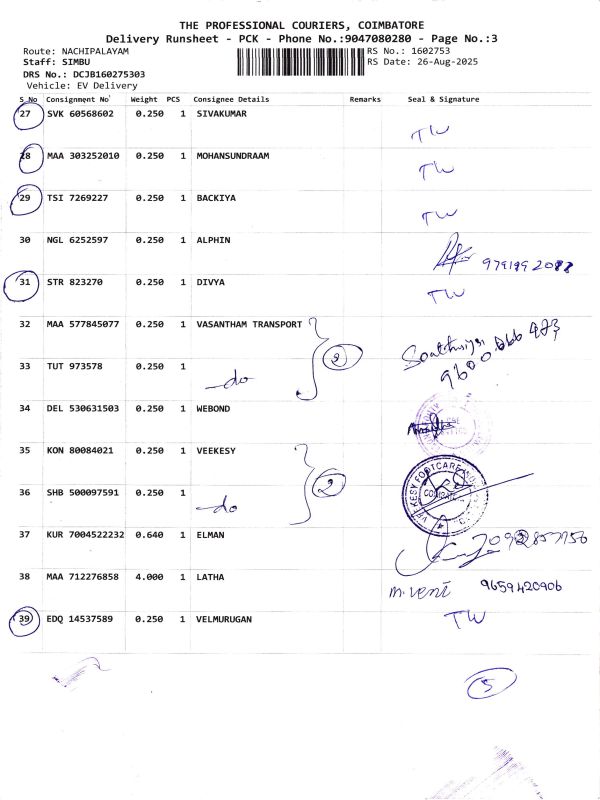 THE PROFESSIONAL COURIERS, COIMBATORE
Delivery Runsheet - PCK - Phone No.:9047080280 - Page No.:3
Route: NACHIPALAYAM RS No.: 1602753
Staff: SIMBU RS Date: 26-Aug-2025
DRS No.: DCJB160275303
Vehicle: EV Delivery
S_No Consignment No Weight PCS Consignee Details Remarks Seal & Signature
27 SVK 60568602 0.250 1 SIVAKUMAR TW
28 MAA 303252010 0.250 1 MOHANSUNDRAAM TW
29 TSI 7269227 0.250 1 BACKIYA TW
30 NGL 6252597 0.250 1 ALPHIN
31 STR 823270 0.250 1 DIVYA TW
32 MAA 577845077 0.250 1 VASANTHAM TRANSPORT 2
33 TUT 973578 0.250 1 -do
34 DEL 530631503 0.250 1 WEBOND
35 KON 80084021 0.250 1 VEEKESY 2
36 SHB 500097591 0.250 1 -do
37 KUR 7004522232 0.640 1 ELMAN
38 MAA 712276858 4.000 1 LATHA M. Veni 9659420906
39 EDQ 14537589 0.250 1 VELMURUGAN TW
5